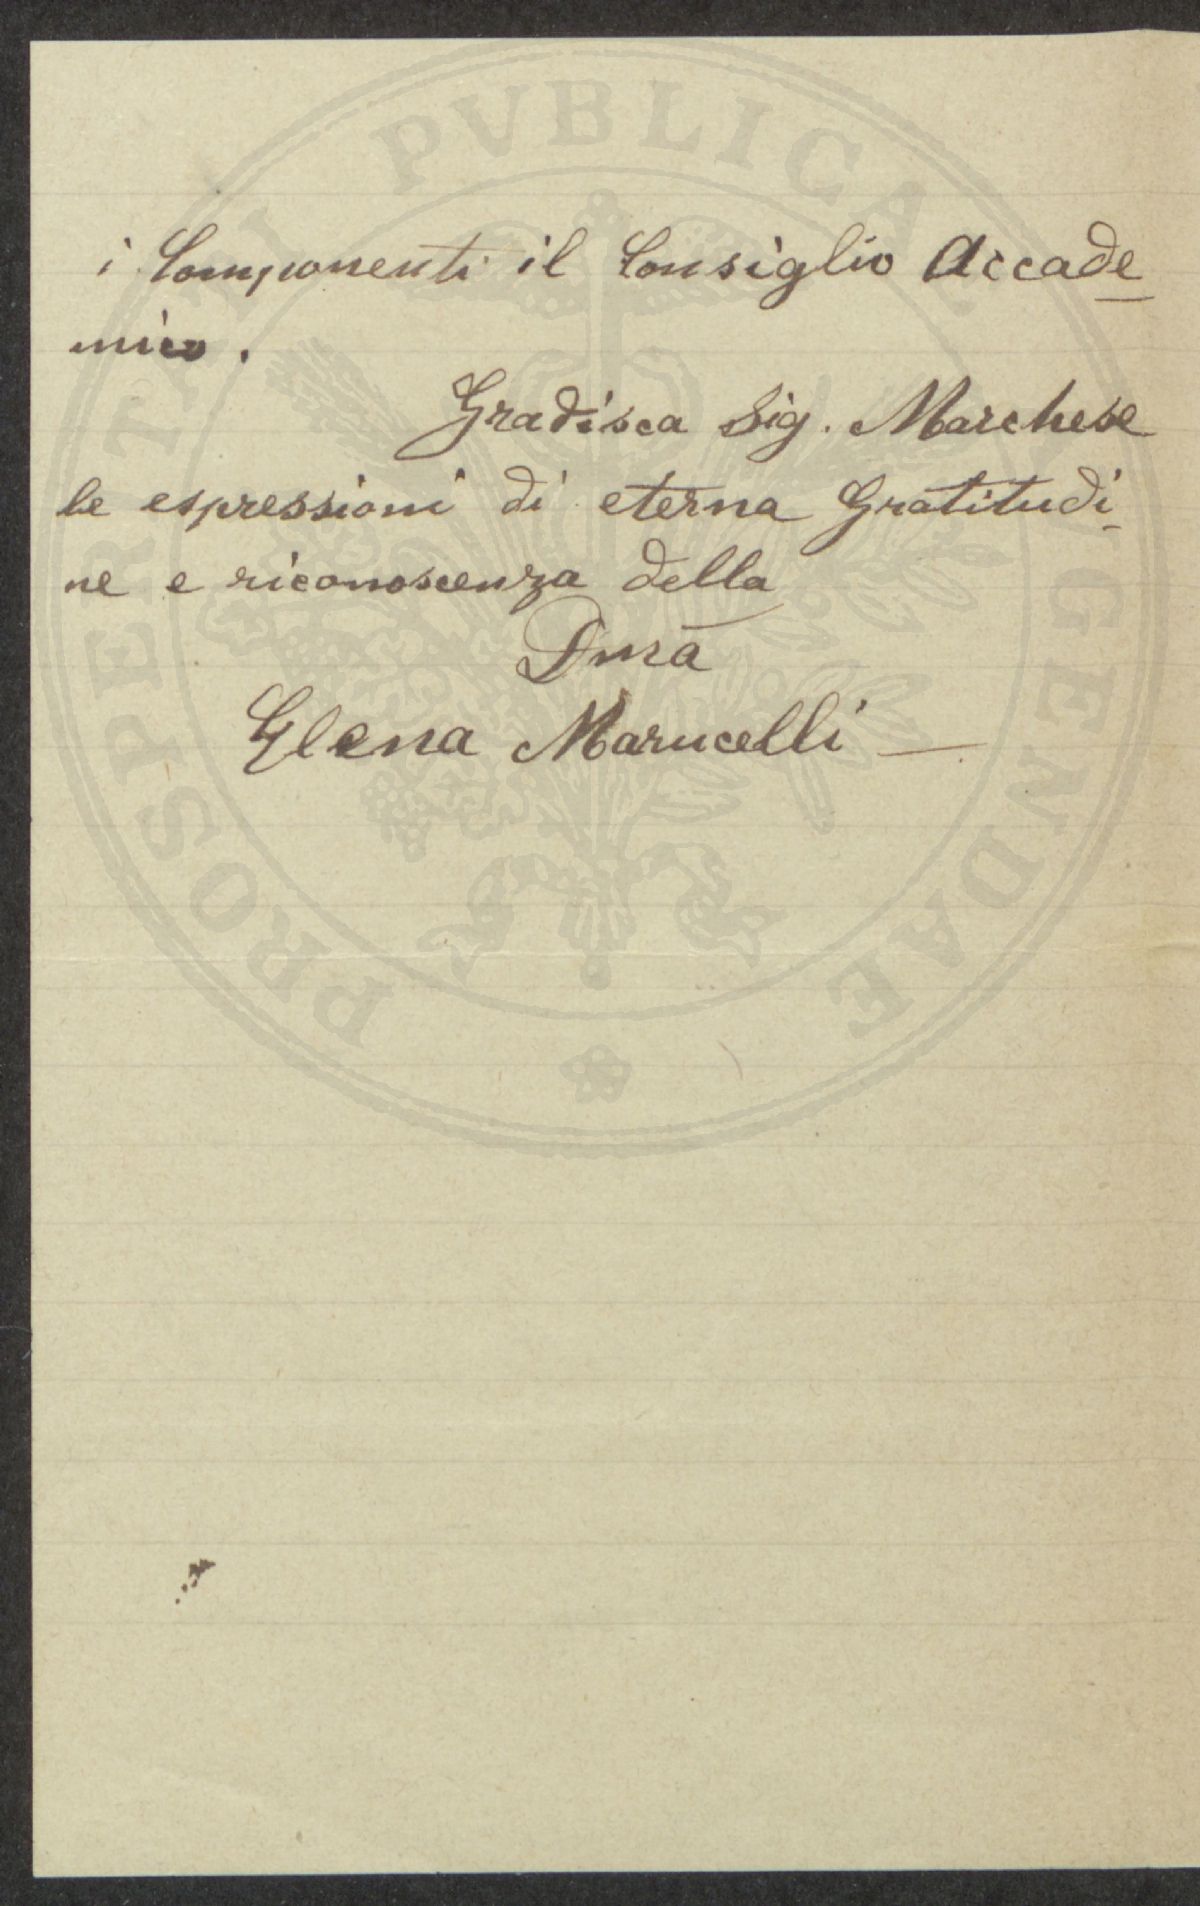 i Componenti il Consiglio Accade
mico.
Gradisca Sig. Marchese
le espressioni di eterna Gratitudi
ne e riconoscenza della
Dma
Elena Marucelli —
PROSPERITATI PVBLICAE AVGENDAE